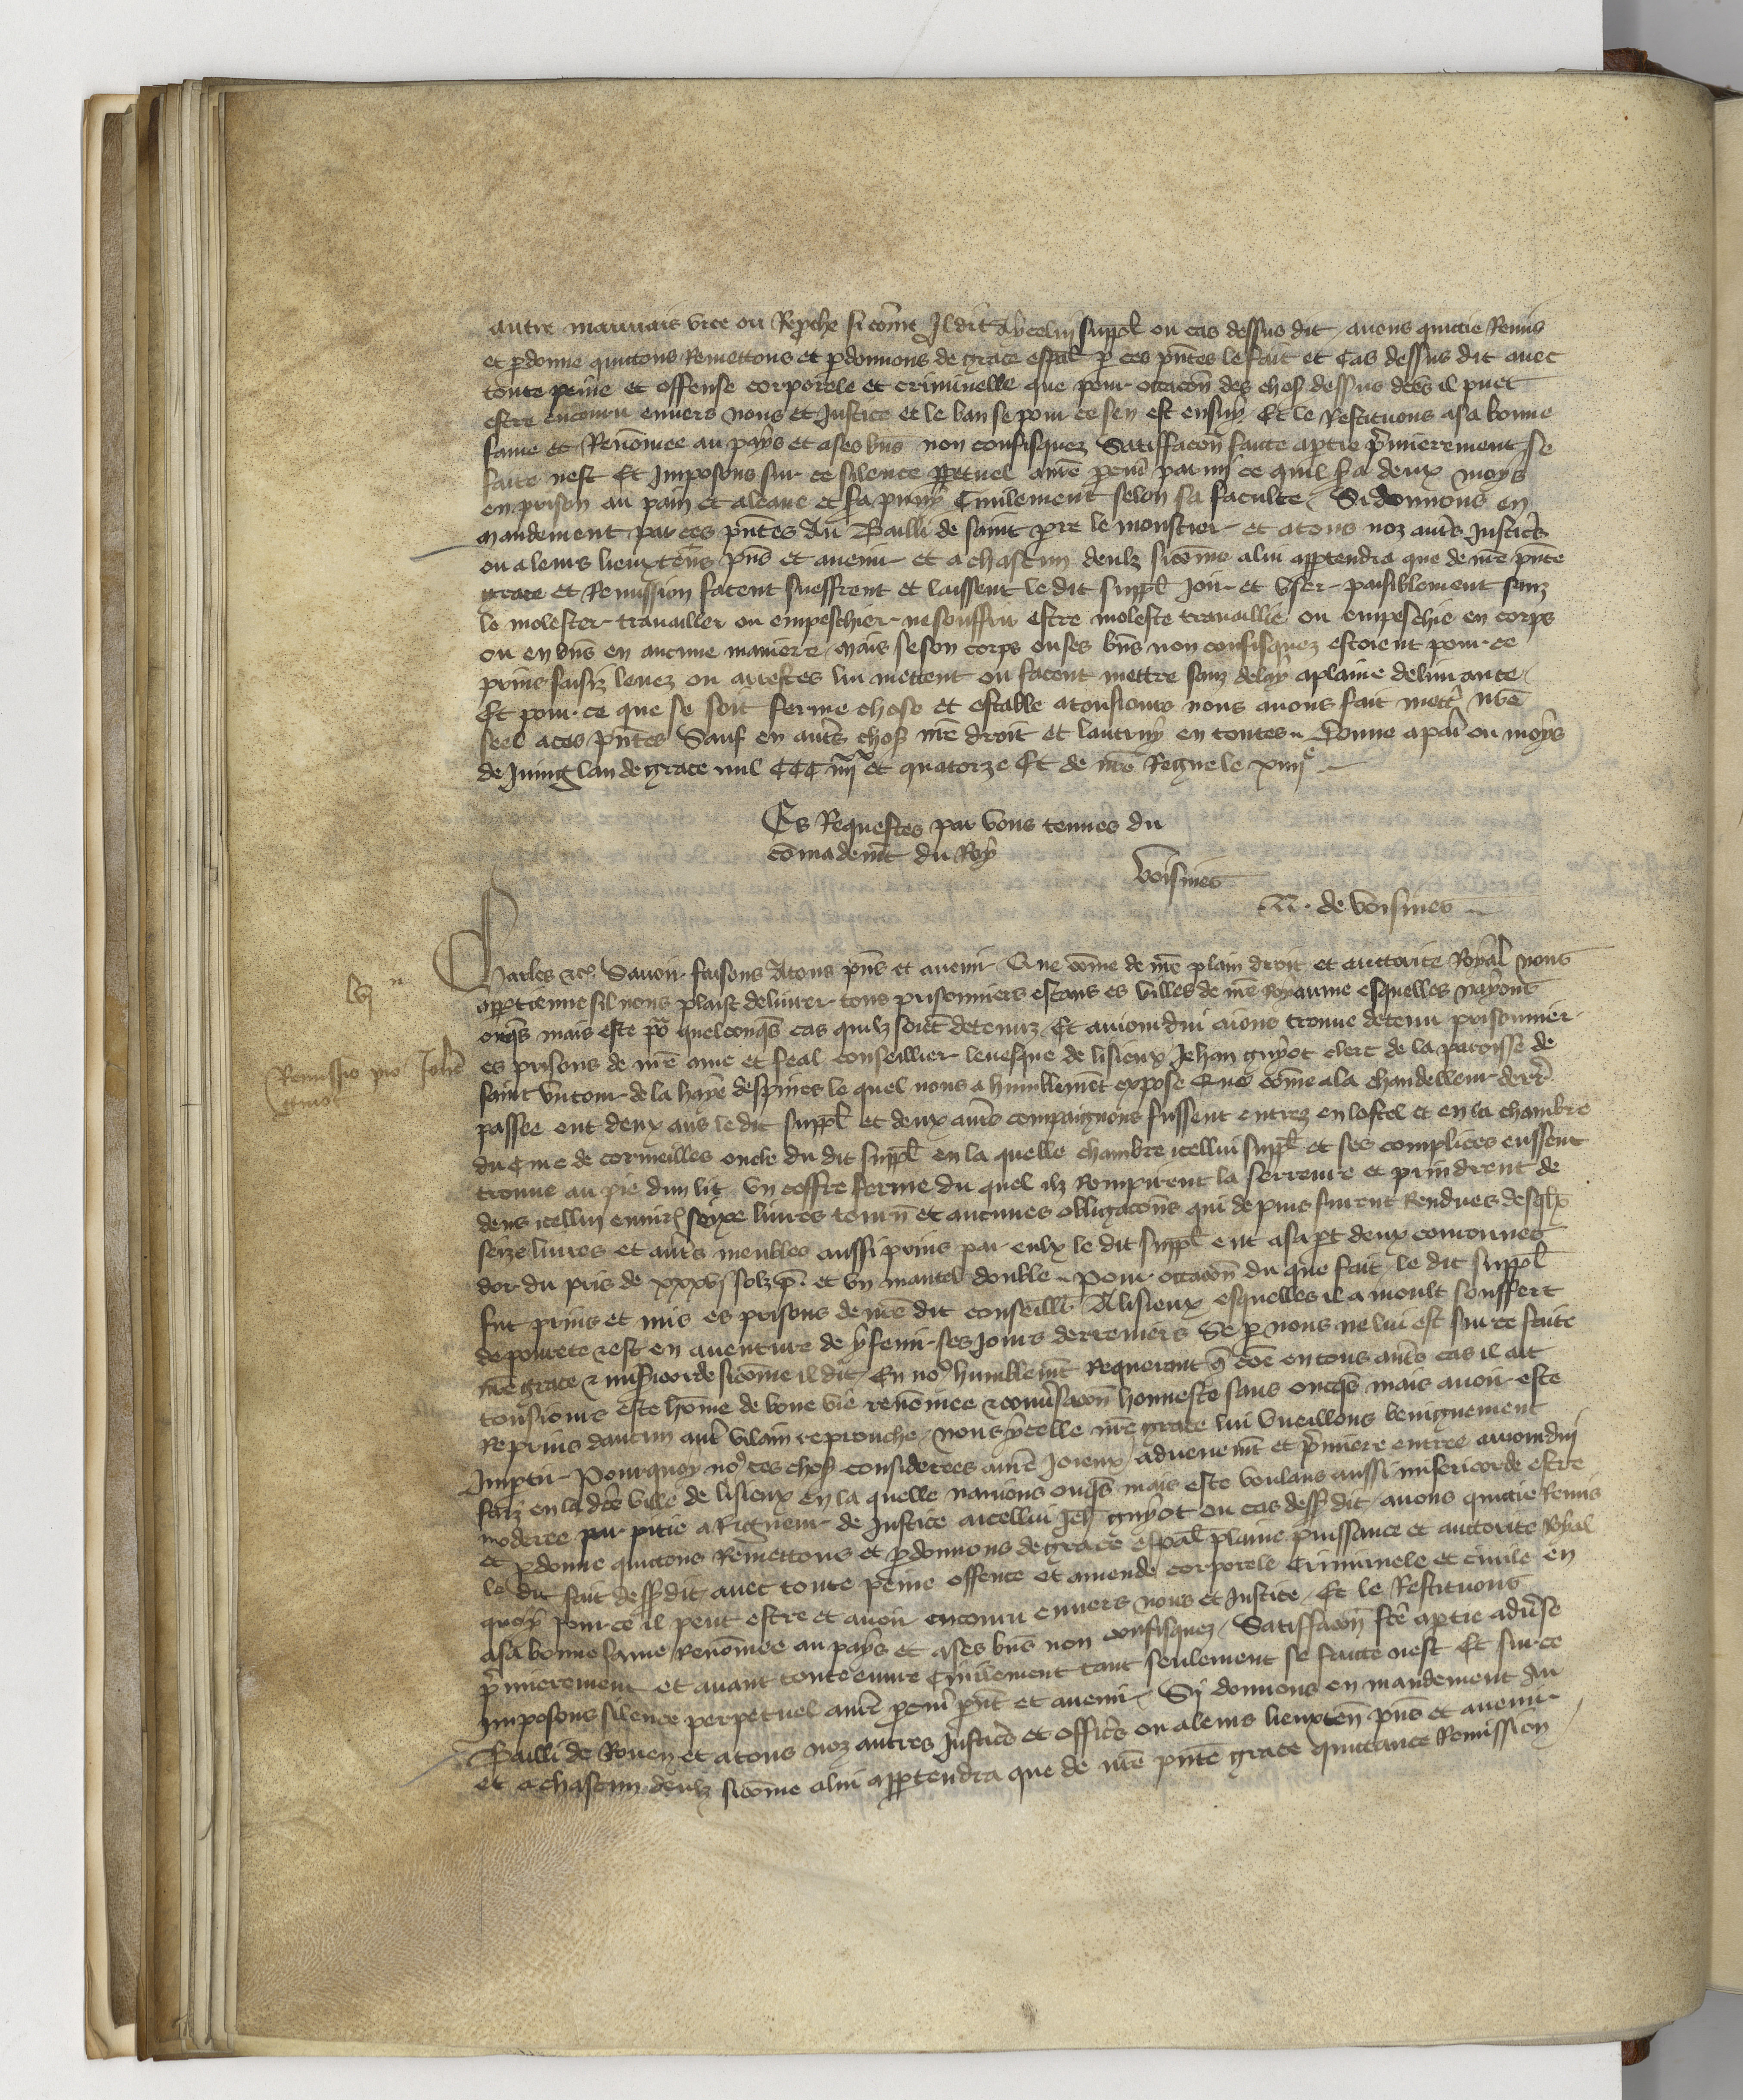 autre mauvais vice ou repche si come Il dit Aycelui suppl ou cas dessus dit avons quictie Remis
et pdonne quictons Remettons et pdonnons de grace espal p ces pntes le fait et Cas dessus dit avec
toute peine et offense corporele et criminelle que pour occacon des chos dessus dces il puet
estre encouru envers nous et Justice et le ban se pour ce sen est ensuy Et le Restituons asa bonne
fame et Renomee au pays et a ses bns non confisquez Satiffacon faicte aptie pmierement se
faite nest Et Imposons sur ce silence ppetuel a nre pcur parmi ce quil sa deux moys
en prison au pain et aleaue et sa puny Civilement selon sa faculte Si donnons en
mandement par ces pntes Au Bailli de saint pre le moustier et atous noz auts Justics
ou a leurs lieuxtens pns et avenir et a chascun deulz sicome alui apptendra que de nre pnte
grace et Remission facent sueffrent et laissent le dit suppl Joir et User paisiblement sanz
le molester travailler ou empeschier ne souffrir estre moleste travaillie ou empeschie en corps
ou en bns en aucune maniere mais se son corps ou ses bns non confisquez estoient pour ce
prins saisiz levez ou arrestes lui mettent ou facent mettre sanz delay aplaine delivrance
Et pour ce que se soit ferme chose et estable atousiours nous avons fait mettr nre
seel aces pntes Sauf en auts chos nre droit et lautruy en toutes Donne a par ou moys
de Juing lan de grace mil CCC iiijxx et quatorze Et de nre Regne le xiiije
Es Requestes par vous tenues du
comademt du Roy
Voisines
N. de Voisines
Charles etc Savoir faisons Atous pns et avenir Que come de nre plain droit et auctorite Royal nous
lvj n
apptienne sil nous plaist delivrer tous prisonniers estans es villes de nre Royaume esquelles nayons
onqs mais este pour quelconqs cas quilz soient detenuz Et aujourdui aions trouve detenu prisonnier
Remissio pro Johe
guiot
es prisons de nre ame et feal conseillier levesque de lisieux Jehan guyot clerc de la paroisse de
saint victour de la haye despines le quel nous a humblemt expose Que come ala chandelleur derr
passee ont deux ans le dit suppl et deux auts compaignons fussent entrez en lostel et en la chambre
du Cure de cormeilles oncle du dit suppl en la quelle chambre icellui suppl et ses complices eussent
trouve au pie dun lit un coffre ferme du quel ilz Rompirent la serreure et prindrent de
dens icellui environ seize livres tourn et aucunes obligacons qui depuis furent Rendues desqlx
seize livres et auts meubles aussi prins par eulx le dit suppl ent asa pt deux couronnes
dor du pris de xxxvj solz p. et un mantel double Pour occacon du que fait le dit suppl
fut prins et mis es prisons de nre dit conseillr A lisieux esquelles il a moult souffert
de povrete et est en aventure de y fenir ses Jours derreniers Se p nous ne lui est sur ce faite
nre grace et misicorde sicome il dit En nous humblemt requerant q coe en tous auts cas il ait
tousiours este home de bone vie renomee et conversacon honneste sans onqs mais avoir este
Reprins daucun autr vilain reprouche nous ycelle nre grace lui Vueillons benignement
Imptir Pourquoy nous ces chos considerees a nre Joieux advenemt et pmiere entree aujourdui
faiz en la dce ville de lisieux en la quelle navions onqs mais este voulans aussi misericorde estre
moderee par pitie a Rigueur de Justice aicellui Jeh guyot ou cas dess dit avons quictie Remis
et pdonne quictons Remettons et pdonnons de grace espal plaine puissance et auctorite Royal
le dit fait dess dit avec toute peine offence et amende corporele Criminele et civile en
quoy pour ce il peut estre et avoir encouru envers nous et Justice Et le Restituons
asa bonne fame Renomee au pays et ases bns non confisquez Satiffacon fce aptie advse
pmierement et avant toute euvre Civilement tant seulement se faicte nest Et sur ce
Imposons silence perpetuel a nre pcur pnt et avenir Sy donnons en mandement Au
Bailli de Rouen et atous noz autres Justics et officrs ou aleurs lieuxten pns et avenir
et a chascun deulz sicome alui apptendra que de nre pnte grace quictance Remission